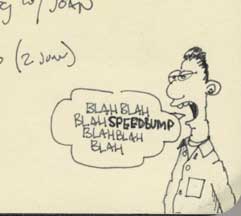 w/ JOAN
(2 JUNE)
BLAH BLAH
BLAH SPEEDBUMP
BLAH BLAH
BLAH